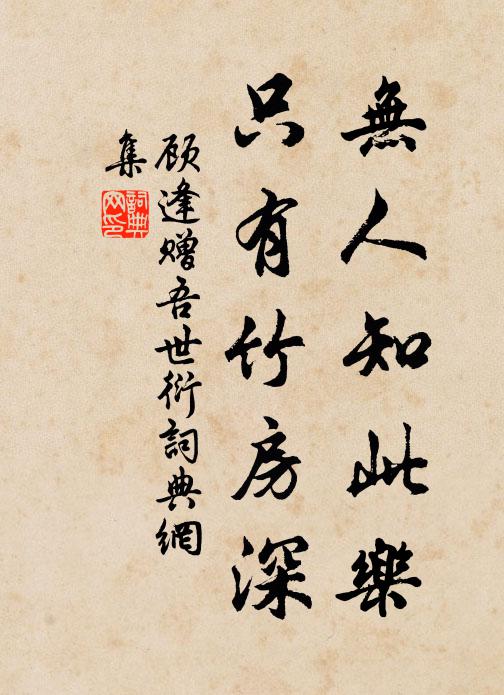 無人知此樂
只有竹房深
顾逢赠吾世衍詞典網
集
詞典
网印